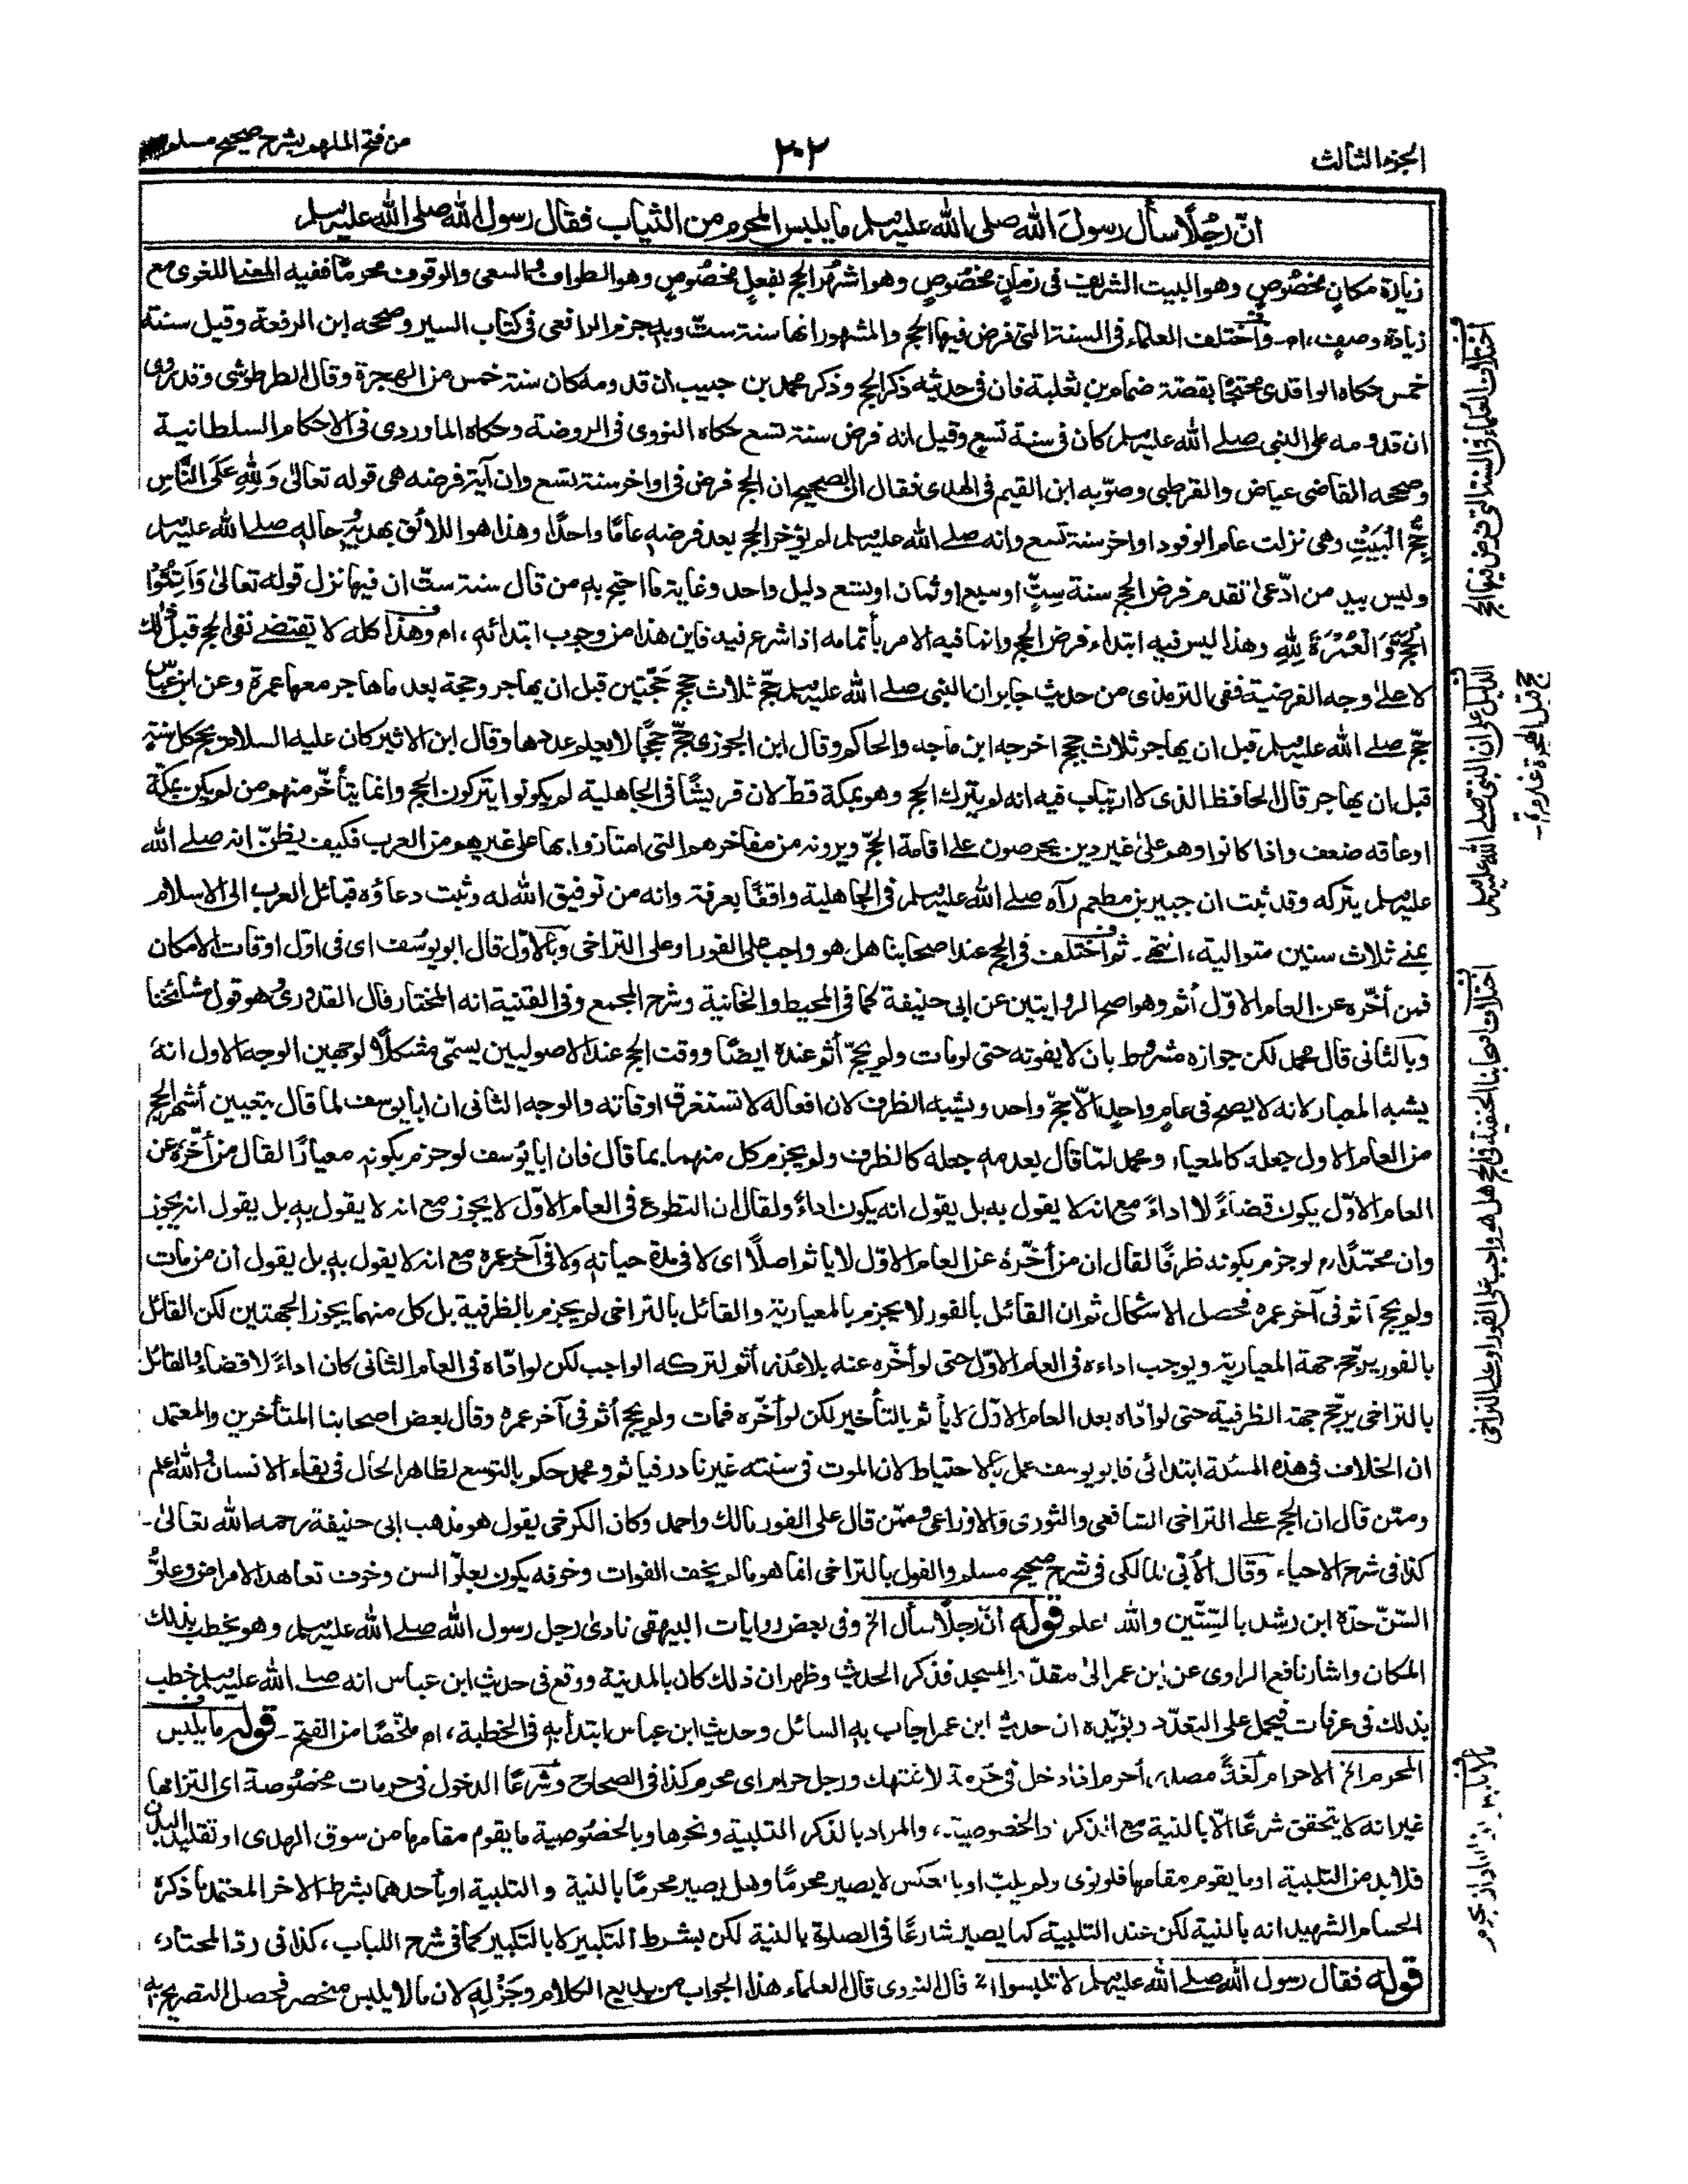 الجزء الثالث
٢٠٢
من فتح الملهم بشرح صحيح مسلم
انّ رجُلًا سأل رسولَ الله صلى الله عليه وسلم ما يلبس المحرم من الثياب فقال رسول الله صلى الله عليه وسلم
زيادة مكانٍ مخصُوصٍ وهو البيت الشريف فى زمانٍ مخصُوصٍ وهو اشهُر الحج بفعلٍ مخصُوصٍ وهو الطواف والسعى والوقوف محرمًا ففيه المعنى اللغوى مع
زيادة وصفٍ، اھ۔ واختلف العلماء فى السنة التى فرض فيها الحج والمشهور انها سنة ستّ وبه جزم الرافعى فى كتاب السير وصححه ابن الرفعة وقيل سنة
خمس حكاه الواقدى محتجًا بقصة ضمام بن ثعلبة فان فى حديثه ذكر الحج وذكر محمد بن حبيب أن قدومه كان سنة خمس من الهجرة وقال الطرطوشى وقد روى
ان قدومه على النبى صلے الله عليه وسلم كان فى سنة تسع وقيل انه فرض سنة تسع حكاه النووى فى الروضة وحكاه الماوردى فى الاحكام السلطانية
وصححه القاضى عياض والقرطبى وصوّبه ابن القيم فى الهدى فقال ان الصحيح ان الحج فرض فى اواخر سنة تسع وان آية فرضه هى قوله تعالىٰ وَلِلّٰهِ عَلَى النَّاسِ
حِجُّ الْبَيْتِ وهى نزلت عام الوفود اواخر سنة تسع وانه صلے الله عليه وسلم لم يؤخر الحج بعد فرضه عامًا واحدًا وهذا هو اللائق بهديه وحاله صلے الله عليه وسلم
وليس بيد من ادّعىٰ تقدم فرض الحج سنة ستٍّ او سبع او ثمان او تسع دليل واحد وغاية ما احتج به من قال سنة ستّ ان فيها نزل قوله تعالىٰ وَاَتِمُّوا
الْحَجَّ وَالْعُمْرَةَ لِلّٰهِ وهذا ليس فيه ابتداء فرض الحج وانما فيه الامر بأتمامه اذا شرع فيه فاين هذا من وجوب ابتدائه، اھ وهذا كله لا يقتضے نفى الحج قبل ذلك
لا علىٰ وجه الفرضية ففى الترمذى من حديث جابر ان النبى صلے الله عليه وسلم حجّ ثلاث حجج حجّتين قبل ان يهاجر وحجة بعد ما هاجر معها عمرة وعن ابن عباس
حجّ صلے الله عليه وسلم قبل ان يهاجر ثلاث حجج اخرجه ابن ماجه والحاكم وقال ابن الجوزى حجّ حججًا لا يعلم عددها وقال ابن الاثير كان عليه السلام يحج كل سنةٍ
قبل ان يهاجر قال الحافظ الذى لا ارتياب فيه انه لم يترك الحج وهو بمكة قط لان قريشًا فى الجاهلية لم يكونوا يتركون الحج وانما يتأخّر منهم من لم يكن بمكة
او عاقه ضعف واذا كانوا وهم علىٰ غير دين يحرصون علے اقامة الحجّ ويرونه من مفاخرهم التى امتازوا بها على غيرهم من العرب فكيف يظنّ انه صلے الله
عليه وسلم يتركه وقد ثبت ان جبير بن مطعم رآه صلے الله عليه وسلم فى الجاهلية واقفًا بعرفة وانه من توفيق الله له وثبت دعاؤه قبائل العرب الى الاسلام
بمنے ثلاث سنين متوالية، انتهے۔ ثم اختلف فى الحج عند اصحابنا هل هو واجب على الفور او على التراخى وبالاوّل قال ابو يوسُف اى فى اوّل اوقات الامكان
فمن أخّره عن العام الاوّل أثم وهو اصح الروايتين عن ابى حنيفة كما فى المحيط والخانية وشرح المجمع وفى القنية انه المختار قال القدورى وهو قول مشائخنا
وبالثانى قال محمد لكن جوازه مشروط بان لا يفوته حتى لو مات ولم يحجّ أثم عنده ايضًا ووقت الحج عند الاصوليين يسمّى مشكلًا لوجهين الوجه الاول انهٗ
يشبه المعيار لانه لا يصح فى عامٍ واحدٍ الّا حجّ واحد ويشبه الظرف لان افعاله لا تستغرق اوقاته والوجه الثانى ان ابا يوسف لما قال بتعيين أشهر الحج
من العام الاول جعله كالمعيار ومحمد لمّا قال بعدمه جعله كالظرف ولم يجزم كل منهما بما قال فان ابا يوسف لو جزم بكونه معيارًا لقال من أخّره عن
العام الاوّل يكون قضاءً لا اداءً مع انه لا يقول به بل يقول انه يكون اداءً ولقال ان التطوع فى العام الاوّل لا يجوز مع انه لا يقول به بل يقول انه يجوز
وان محمّدًا رح لو جزم بكونه ظرفًا لقال ان من أخّرهٗ عن العام الاوّل لا يأثم اصلًا اى لا فى مدة حياته ولا فى آخر عمره مع انه لا يقول به بل يقول أن من مات
ولم يحج أثم فى آخر عمره فحصل الاشكال ثم ان القائل بالفور لا يجزم بالمعيارية والقائل بالتراخى لم يجزم بالظرفية بل كل منهما يجوز الجهتين لكن القائل
بالفور يرجّح جهة المعيارية ويوجب اداءه فى العام الاوّل حتى لو أخّره عنه بلا عذر أثم لتركه الواجب لكن لو ادّاه فى العام الثانى كان اداءً لا قضاءً والقائل
بالتراخى يرجّح جهة الظرفية حتى لو ادّاه بعد العام الاوّل لا يأثم بالتأخير لكن لو أخّره فمات ولم يحج أثم فى آخر عمره وقال بعض اصحابنا المتأخرين والمعتمد
ان الخلاف فى هذه المسئلة ابتدائى فابو يوسف عمل بالاحتياط لان الموت فى سنته غير نادر فيأثم ومحمد حكم بالتوسع لظاهر الحال فى بقاء الانسان والله اعلم
وممّن قال ان الحج علے التراخى الشافعى والثورى والاوزاعى وممّن قال على الفور مالك واحمد وكان الكرخى يقول هو مذهب ابى حنيفة رحمه الله تعالىٰ۔
كذا فى شرح الاحياء وقال الأبّى المالكى فى شرح صحيح مسلم والقول بالتراخى انما هو ما لم يخف الفوات وخوفه يكون بعلوّ السن وخوف تعاهد الامراض وعلوُّ
السّنّ حدّه ابن رشد بالستّين والله اعلم قوله أنّ رجلًا سأل الخ وفى بعض روايات البيهقى نادىٰ رجل رسول الله صلے الله عليه وسلم وهو يخطب بذلك
المكان واشار نافع الراوى عن ابن عمر الىٰ مقدّم المسجد فذكر الحديث وظهر ان ذلك كان بالمدينة ووقع فى حديث ابن عباس انه صلے الله عليه وسلم خطب
بذلك فى عرفات فيحمل على التعدّد ويؤيّده ان حديث ابن عمر اجاب به السائل وحديث ابن عباس ابتدأ به فى الخطبة، اھ ملخّصًا من الفتح۔ قوله ما يلبس
المحرم الخ الاحرام لُغةً مصدر أحرم اذا دخل فى حُرمة لا تنتهك ورجل حرام اى محرم كذا فى الصحاح وشرعًا الدخول فى حرمات مخصُوصة اى التزامها
غير انه لا يتحقق شرعًا الّا بالنية مع الذكر والخصوصية، والمراد بالذكر التلبية ونحوها وبالخصُوصية ما يقوم مقامها من سوق الهدى او تقليد البدن
فلا بد من التلبية او ما يقوم مقامها فلو نوى ولم يلبّ او بالعكس لا يصير محرمًا وهل يصير محرمًا بالنية و التلبية او بأحدهما بشرط الاخر المعتمد ما ذكره
الحسام الشهيد انه بالنية لكن عند التلبية كما يصير شارعًا فى الصلوة بالنية لكن بشرط التكبير لا بالتكبير كما فى شرح اللباب، كذا فى رد المحتار،
قوله فقال رسول الله صلے الله عليه وسلم لا تلبسوا الخ قال النووى قال العلماء هذا الجواب من بديع الكلام وجَزْلِهِ لان ما لا يلبس منحصر فحصل التصريح به
اختلاف العلماء فى السنة التى فرض فيها الحج
الدليل على ان النبى صلے الله عليه وسلم
حج قبل الهجرة غير مرة۔
اختلاف اصحابنا الحنفية فى الحج هل هو واجب على الفور او على التراخى